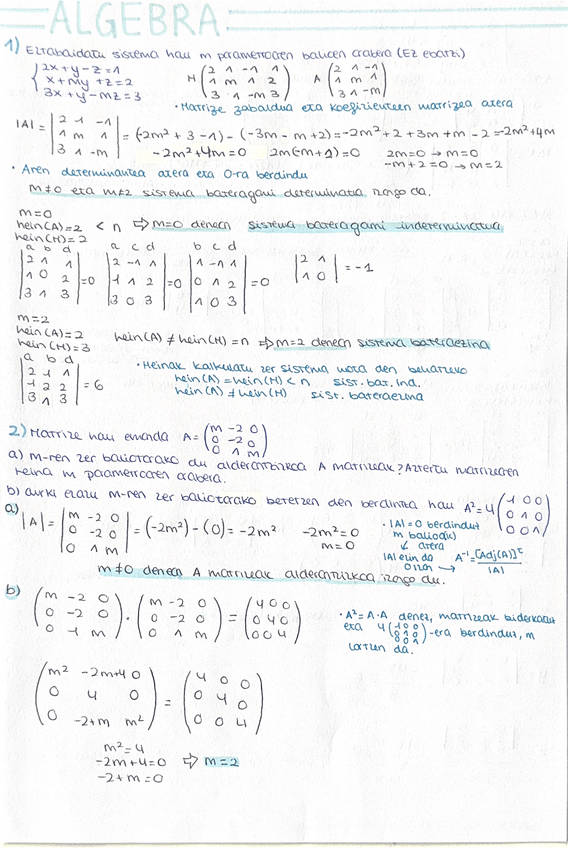 ALGEBRA
1) Eztabaidatu sistema hau m parametroaren balioen arabera (Ez ebatzi)
{ 2x+y-z=1
x+my+z=2
3x+y-mz=3
M ( 2 1 -1 1
1 m 1 2
3 1 -m 3 )
A ( 2 1 -1
1 m 1
3 1 -m )
• Matrize zabaldua eta koefizienteen matrizea atera
|A| = | 2 1 -1
1 m 1
3 1 -m | = (-2m² + 3 - 1) - (-3m - m + 2) = -2m² + 2 + 3m + m - 2 = -2m² + 4m
-2m² + 4m = 0 2m(-m+1) = 0 2m = 0 → m = 0
-m + 2 = 0 → m = 2
• Aren determinantea atera eta 0-ra berdindu
m≠0 eta m≠2 sistema bateragarri determinatua izango da.
m=0
hein(A)=2 < n ⇒ m=0 denean sistema bateragarri indeterminatua
hein(M)=2
a b d
| 2 1 1
1 0 2
3 1 3 | = 0
a c d
| 2 -1 1
1 1 2
3 0 3 | = 0
b c d
| 1 -1 1
0 1 2
1 0 3 | = 0
| 2 1
1 0 | = -1
m=2
hein(A)=2
hein(M)=3
hein(A) ≠ hein(M) = n ⇒ m=2 denean sistema bateraezina
a b d
| 2 1 1
1 2 2
3 1 3 | = 6
• Heinak kalkulatu zer sistema mota den behatzeko
hein(A) = hein(M) < n sist. bat. ind.
hein(A) ≠ hein(M) sist. bateraezina
2) Matrize hau emanda A = ( m -2 0
0 -2 0
0 1 m )
a) m-ren zer baliotarako du alderantzizkoa A matrizeak? Aztertu matrizearen
heina m parametroaren arabera.
b) aurki ezazu m-ren zer baliotarako betetzen den berdintza hau A² = 4 ( 1 0 0
0 1 0
0 0 1 )
a) |A| = | m -2 0
0 -2 0
0 1 m | = (-2m²) - (0) = -2m² -2m² = 0
m = 0
• |A| = 0 berdindu
m balio(a)
↓ atera
|A| ezin da
0 izan → A⁻¹ = [Adj(A)]ᵗ / |A|
m≠0 denean A matrizeak alderantzizkoa izango du.
b) ( m -2 0
0 -2 0
0 1 m ) · ( m -2 0
0 -2 0
0 1 m ) = ( 4 0 0
0 4 0
0 0 4 )
• A² = A·A denez, matrizeak biderkatu
eta 4 ( 1 0 0
0 1 0
0 0 1 ) -era berdinduz, m
lortzen da.
( m² -2m+4 0
0 4 0
0 -2+m m² ) = ( 4 0 0
0 4 0
0 0 4 )
m² = 4
-2m + 4 = 0 ⇒ m = 2
-2 + m = 0